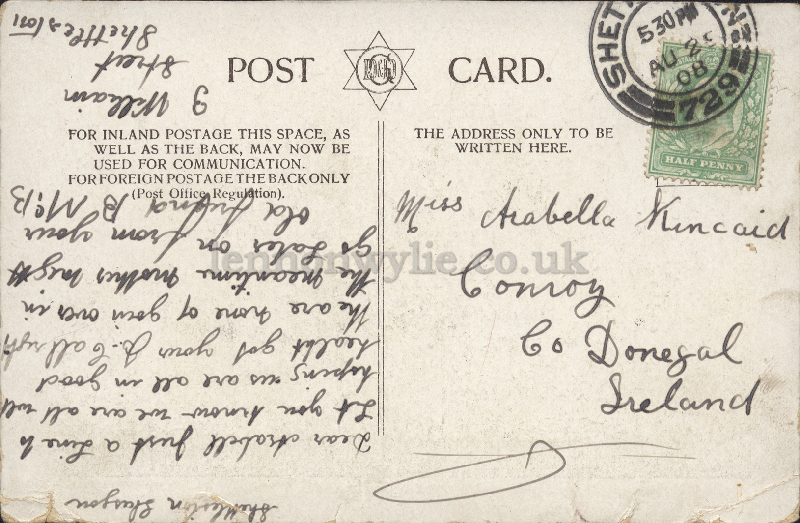 POST CARD.
FOR INLAND POSTAGE THIS SPACE, AS
WELL AS THE BACK, MAY NOW BE
USED FOR COMMUNICATION.
FOR FOREIGN POSTAGE THE BACK ONLY
(Post Office Regulation).
THE ADDRESS ONLY TO BE
WRITTEN HERE.
5 30 PM
AU
08
729
HALF PENNY
Miss Arabella Kincaid
Conroy
Co Donegal
Ireland
lennonwylie.co.uk
Shettleston Glasgow
Dear Arabell Just a Line to
Let you know we are all well
hoping us are all in good
health got your P. C all right
the are none of goin over in
the meantime mother might
go Later on from your
old friend B McB
9 William
Street
Shettleston